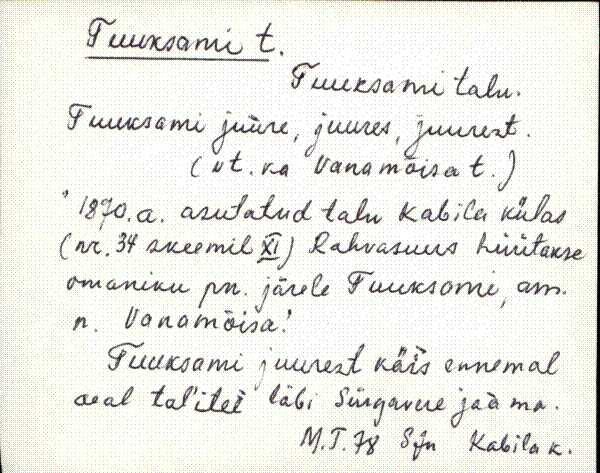 Tuuksami t.
Tuuksami talu.
Tuuksami juure, juures, juurest.
(vt. ka Vanamõisa t.)
"1870. a. asutatud talu Kabila külas
(nr. 34 skeemil XI) Rahvasuus hüütakse
omaniku pn. järele Tuuksami, am.
n. Vanamõisa."
Tuuksami juurest käis ennemal
aeal tal'itеi läbi Sürgavere jaama.
M.T. 78 Sjn Kabila k.